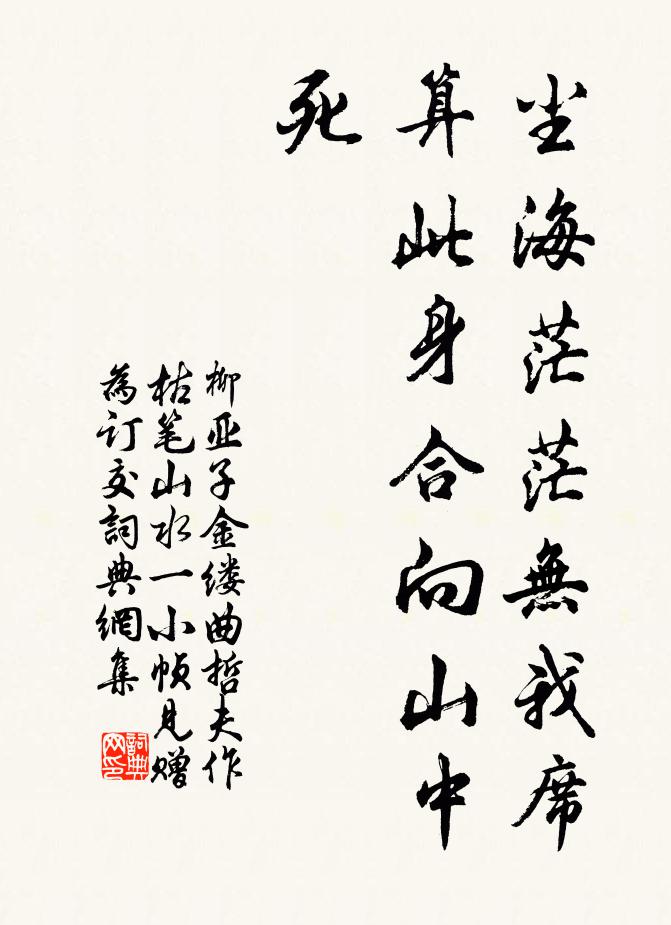 尘海茫茫無我席
算此身合向山中
死
柳亚子金缕曲哲夫作
枯笔山水一小帧見赠
為订交詞典網集
詞典网印